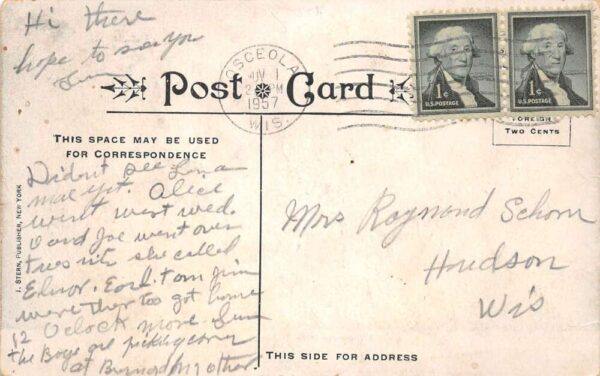 Hi there
hope to see you
Post Card
OSCEOLA
1957
WIS.
1¢
U.S. POSTAGE
1¢
U.S. POSTAGE
FOREIGN
TWO CENTS
THIS SPACE MAY BE USED
FOR CORRESPONDENCE
J. STERN, PUBLISHER, NEW YORK
Didnt see
yet. Alice
went west wed.
and Joe went over
tues nite she called
Elnor. Earl. tom Jim
were ther too got home
12 Oclock more
the Boys are picking corn
at
Mrs Raymond Schorn
Houdson
Wis
THIS SIDE FOR ADDRESS